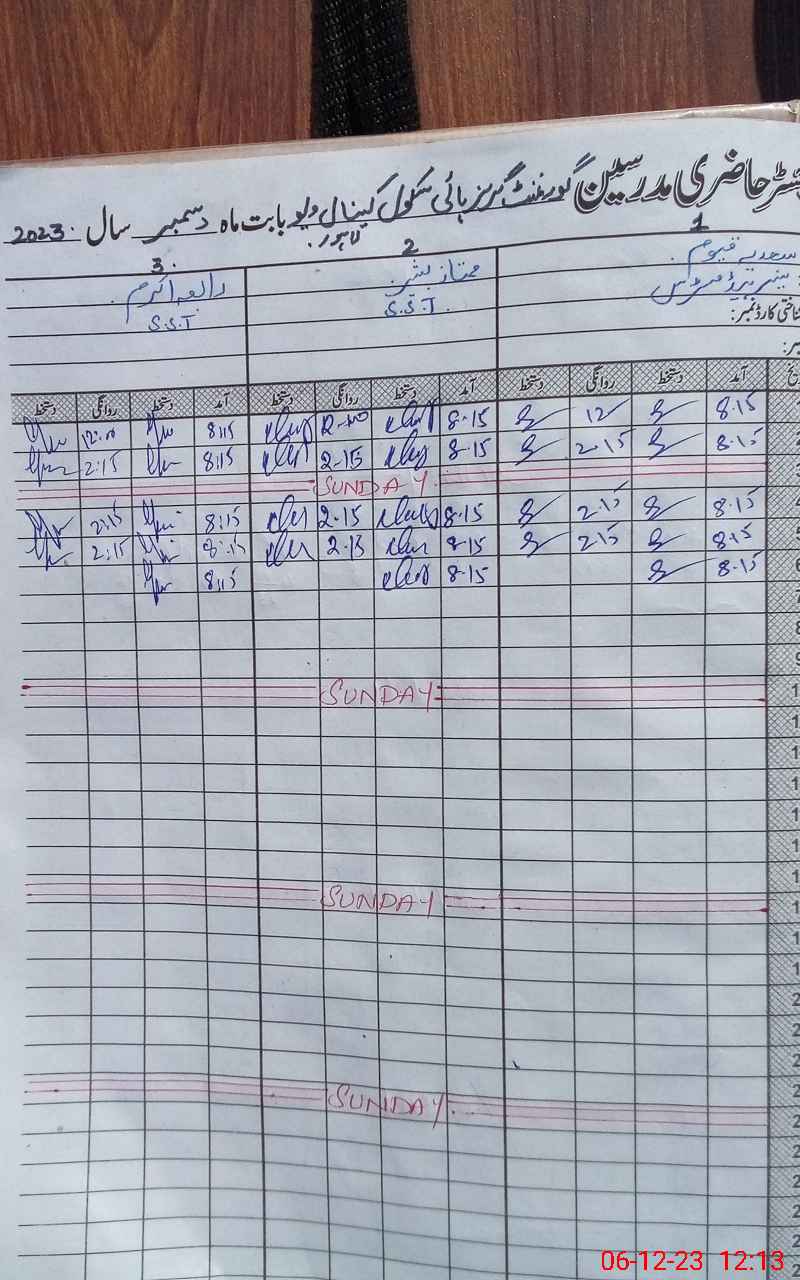 رجسٹر حاضری مدرسین گورنمنٹ گرلز ہائی سکول کینال ویو بابت ماہ دسمبر سال 2023
لاہور
1 2 3
سعدیہ قیوم ممتاز بشیر رابعہ اکرم
سینئر ہیڈ مسٹریس S.S.T S.S.T
شناختی کارڈ نمبر:
آمد دستخط روانگی دستخط آمد دستخط روانگی دستخط آمد دستخط روانگی دستخط
8.15 12 8.15 12.00 8:15 12:00
8.15 2.15 8.15 2.15 8:15 2:15
SUNDAY
8.15 2.15 8.15 2.15 8:15 2:15
8.15 2.15 8.15 2.15 8:15 2:15
8.15 8.15 8:15
SUNDAY
SUNDAY
SUNDAY
06-12-23 12:13